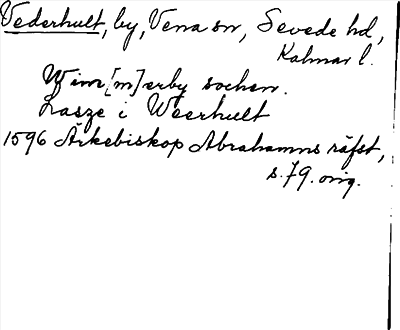 Vederhult, by, Vena sn, Sevede hd,
Kalmar l.
Wim[m]erby sochen.
Lasze i Weerhult
1596 Ärkebiskop Abrahams räfst,
s. 79. orig.